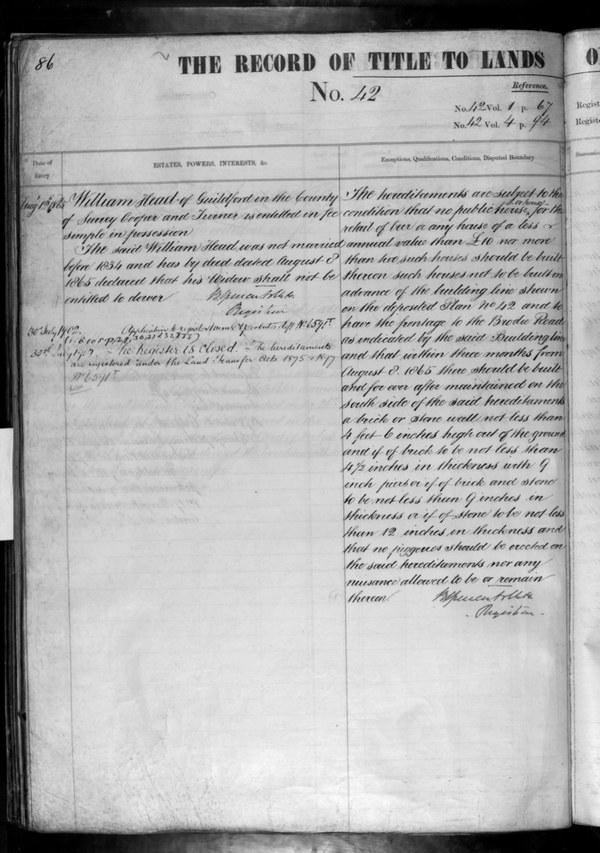 86
THE RECORD OF TITLE TO LANDS
No. 42
Reference.
No. 42 Vol. 1 p. 67
No. 42 Vol. 4 p. 94
Date of
Entry
ESTATES, POWERS, INTERESTS, &c.
Exceptions, Qualifications, Conditions, Disputed Boundary
1865
William Head of Guildford in the County
of Surrey Cooper and Turner is entitled in fee
simple in possession
The said William Head was not married
before 1834 and has by deed dated August 8
1865 declared that his Widow shall not be
entitled to dower
Registrar
30th July 1902.
30th
The Register is closed. The hereditaments
are registered under the Land Transfer Acts 1875 & 1897
No 6591T
The hereditaments are subject to the
condition that no public house for the
retail of beer or any house of a less
annual value than £10 nor more
than two such houses should be built
thereon such houses not to be built on
advance of the building line shown
on the deposited Plan No 42 and to
have the frontage to the Brodie Road
as indicated by the said Building line
and that within three months from
August 8. 1865 there should be built
and for ever after maintained on the
south side of the said hereditaments
a brick or stone wall not less than
4 feet 6 inches high out of the ground
and if of brick to be not less than
4½ inches in thickness with 9
inch piers or if of brick and stone
to be not less than 9 inches in
thickness or if of stone to be not less
than 12 inches in thickness and
that no piggeries should be erected on
the said hereditaments nor any
nuisance allowed to be or remain
thereon
Registrar
O
Regist
Registe